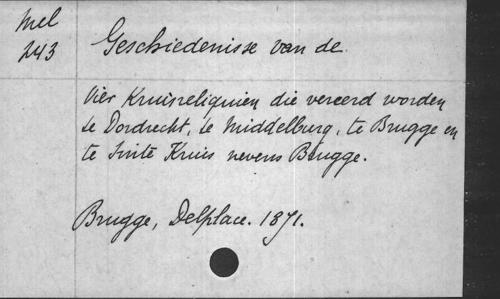 Mel
243
Geschiedenisse van de
Vier Kruisreliquien die vereerd worden
te Dordrecht, te Middelburg, te Brugge en
te Sinte Kruis nevens Brugge.
Brugge, Delplace. 1871.